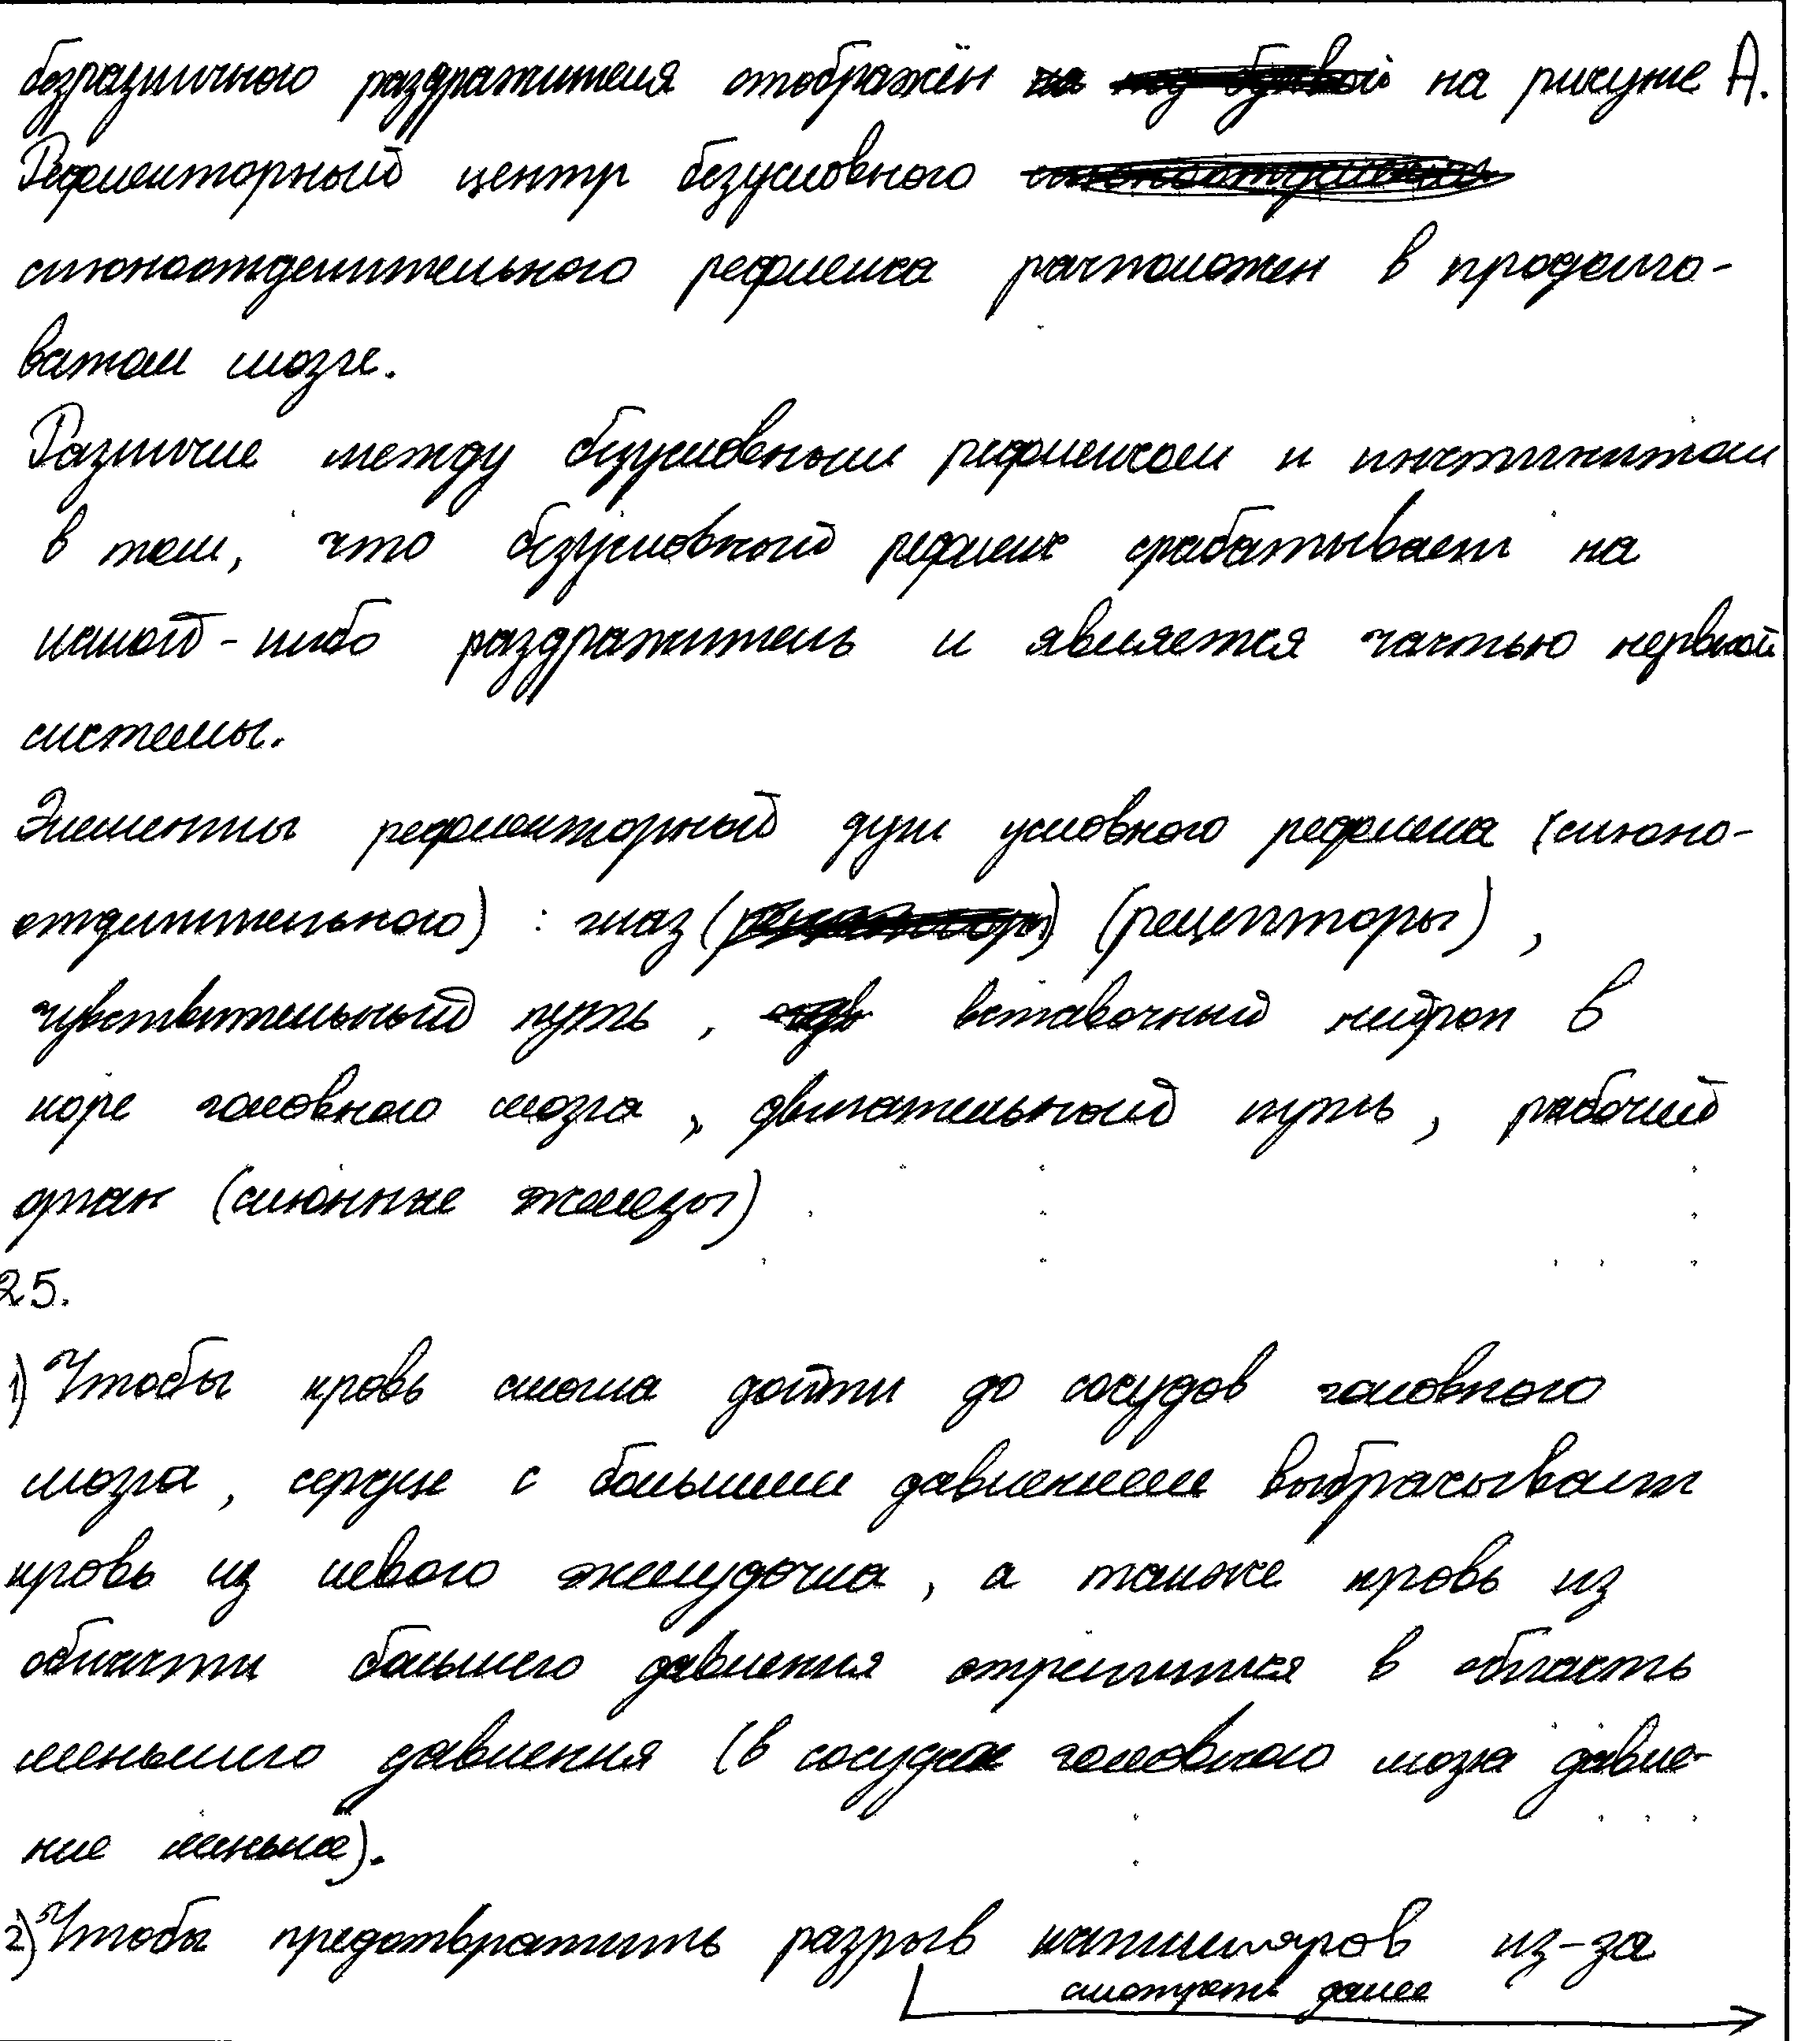 безразличного раздражителя отображён на рисунке А.
Рефлекторный центр безусловного
слюноотделительного рефлекса расположен в продолго-
ватом мозге.
Различие между безусловным рефлексом и инстинктом
в том, что безусловный рефлекс срабатывает на
какой-либо раздражитель и является частью нервной
системы.
Элементы рефлекторный дуги условного рефлекса (слюно-
отделительного) : глаз (рецепторы) ,
чувствительный путь , вставочный нейрон в
коре головного мозга , двигательный путь , рабочий
орган (слюнные железы)
25.
1) Чтобы кровь смогла дойти до сосудов головного
мозга , сердце с большим давлением выбрасывает
кровь из левого желудочка , а также кровь из
области большего давления стремится в область
меньшего давления (в сосудах головного мозга давле-
ние меньше).
2) Чтобы предотвратить разрыв капилляров из-за
смотреть далее